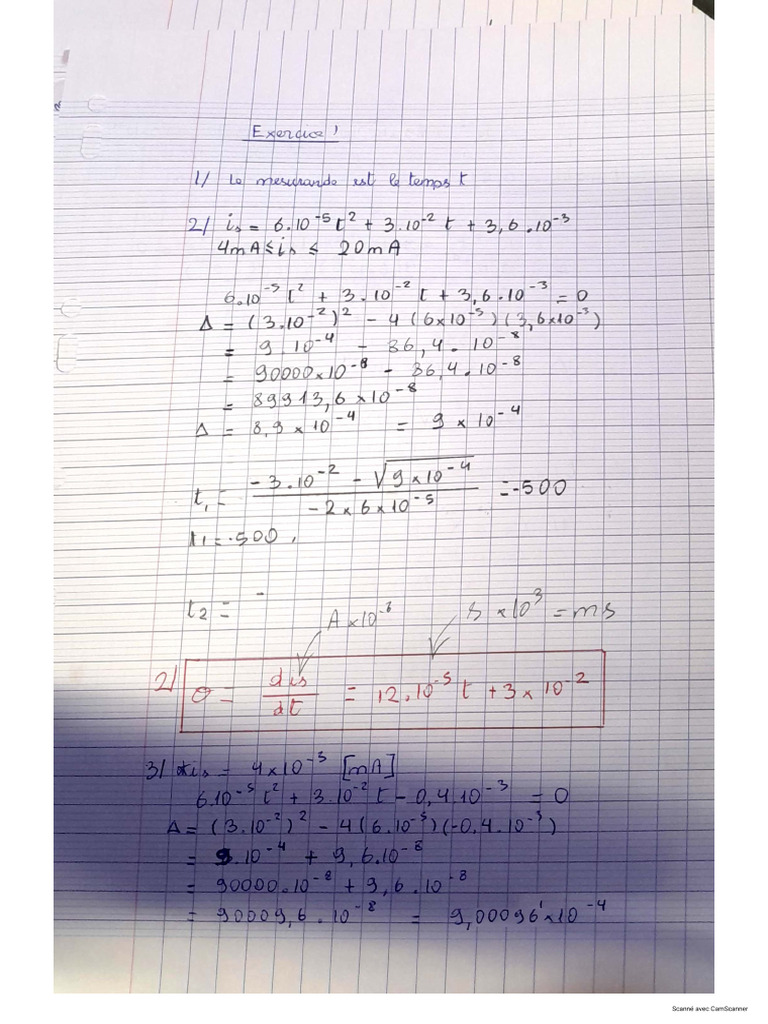 Exercice 1
1/ Le mesurande est le temps t
2/ is = 6.10⁻⁵t² + 3.10⁻² t + 3,6.10⁻³
4mA ≤ is ≤ 20mA
6.10⁻⁵ t² + 3.10⁻² t + 3,6.10⁻³ = 0
Δ = (3.10⁻²)² - 4 (6×10⁻⁵) (3,6×10⁻³)
= 9.10⁻⁴ - 86,4.10⁻⁸
= 90000×10⁻⁸ - 86,4.10⁻⁸
= 89913,6×10⁻⁸
Δ = 8,9×10⁻⁴ = 9×10⁻⁴
t₁ = (-3.10⁻² - √(9×10⁻⁴)) / (-2×6×10⁻⁵) = -500
t1 = -500,
t2 = -
A×10⁻⁶ S×10³ = ms
2/ σ = dis/dt = 12.10⁻⁵ t + 3×10⁻²
3/ is = 4×10⁻³ [mA]
6.10⁻⁵ t² + 3.10⁻² t - 0,4.10⁻³ = 0
Δ = (3.10⁻²)² - 4(6.10⁻⁵)(-0,4.10⁻³)
= 9.10⁻⁴ + 9,6.10⁻⁸
= 90000.10⁻⁸ + 9,6.10⁻⁸
= 90009,6.10⁻⁸ = 9,00096×10⁻⁴
Scanné avec CamScanner